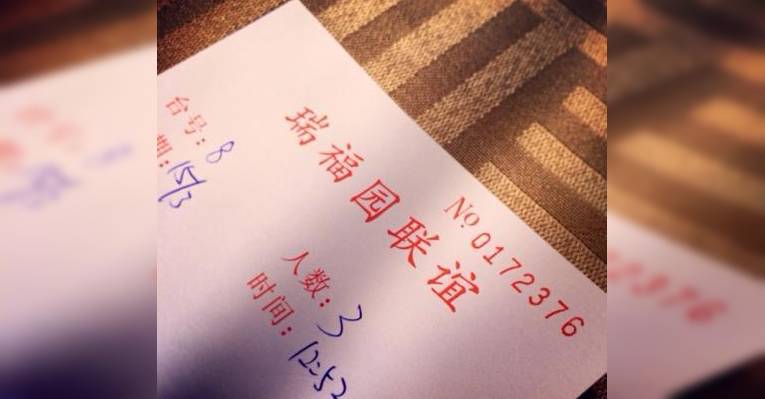 瑞福园联谊
No 0172376
台号: 8
期: 15/3
人数: 3
时间: 12:52